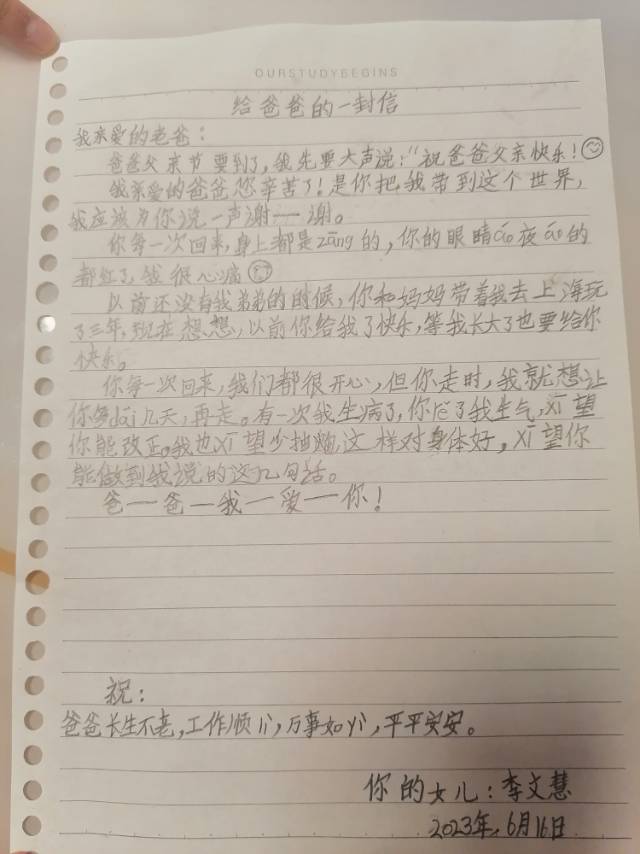 OURSTUDYBEGINS
给爸爸的一封信
我亲爱的老爸：
爸爸父亲节要到了，我先要大声说："祝爸爸父亲快乐！
我亲爱的爸爸您辛苦了！是你把我带到这个世界，
我应该为你说一声谢一一谢。
你每一次回来，身上都是zāng的，你的眼睛áo夜áo的
都红了，我很心痛
以前还没有我弟弟的时候，你和妈妈带着我去上海玩
了三年，现在想想，以前你给我了快乐，等我长大了也要给你
快乐。
你每一次回来，我们都很开心，但你走时，我就想让
你多dāi几天，再走。有一次我生病了，你为了我生气，xī望
你能改正。我也xī望少抽烟，这样对身体好，xī望你
能做到我说的这几句话。
爸一爸一我一爱一你！
祝：
爸爸长生不老，工作顺lì，万事如yì，平平安安。
你的女儿：李文慧
2023年，6月16日